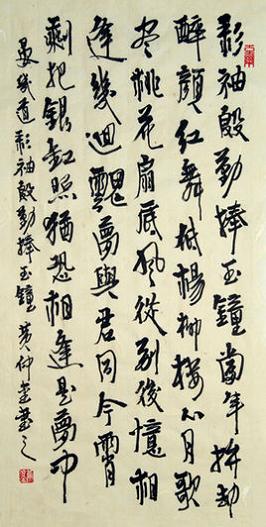 彩袖殷勤捧玉鐘當年拚却
醉顏紅舞低楊柳樓心月歌
尽桃花扇底風從別後憶相
逢幾迴魂夢與君同今宵
剩把銀釭照猶恐相逢是夢中
晏幾道彩袖殷勤捧玉鐘 黄仲書之